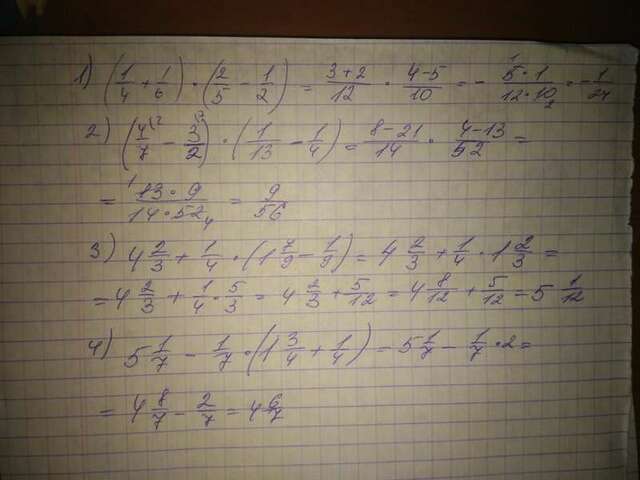 1) (1/4 + 1/6) · (2/5 - 1/2) = 3+2/12 · 4-5/10 = - 5·1/12·10 · -1/24
2) (4/7 - 3/2) · (1/13 - 1/4) = 8-21/14 · 4-13/52 =
= 13·9/14·52 = 9/56
3) 4 2/3 + 1/4 · (1 7/9 - 1/9) = 4 2/3 + 1/4 · 1 2/3 =
= 4 2/3 + 1/4 · 5/3 = 4 2/3 + 5/12 = 4 8/12 + 5/12 = 5 1/12
4) 5 1/7 - 1/7 · (1 3/4 + 1/4) = 5 1/7 - 1/7 · 2 =
= 4 8/7 - 2/7 = 4 6/7